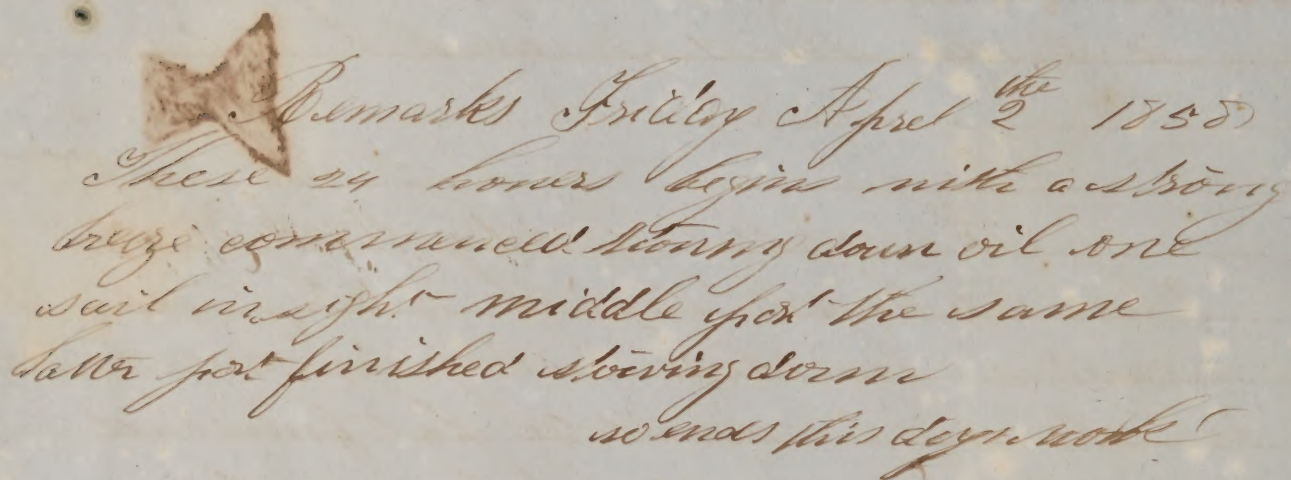 Remarks Friday Aprel the 2 1858
These 24 howers begins with a strong
breeze commenced stowing down oil one
sail in sight middle part the same
latter part finished stowing down
so ends this days work